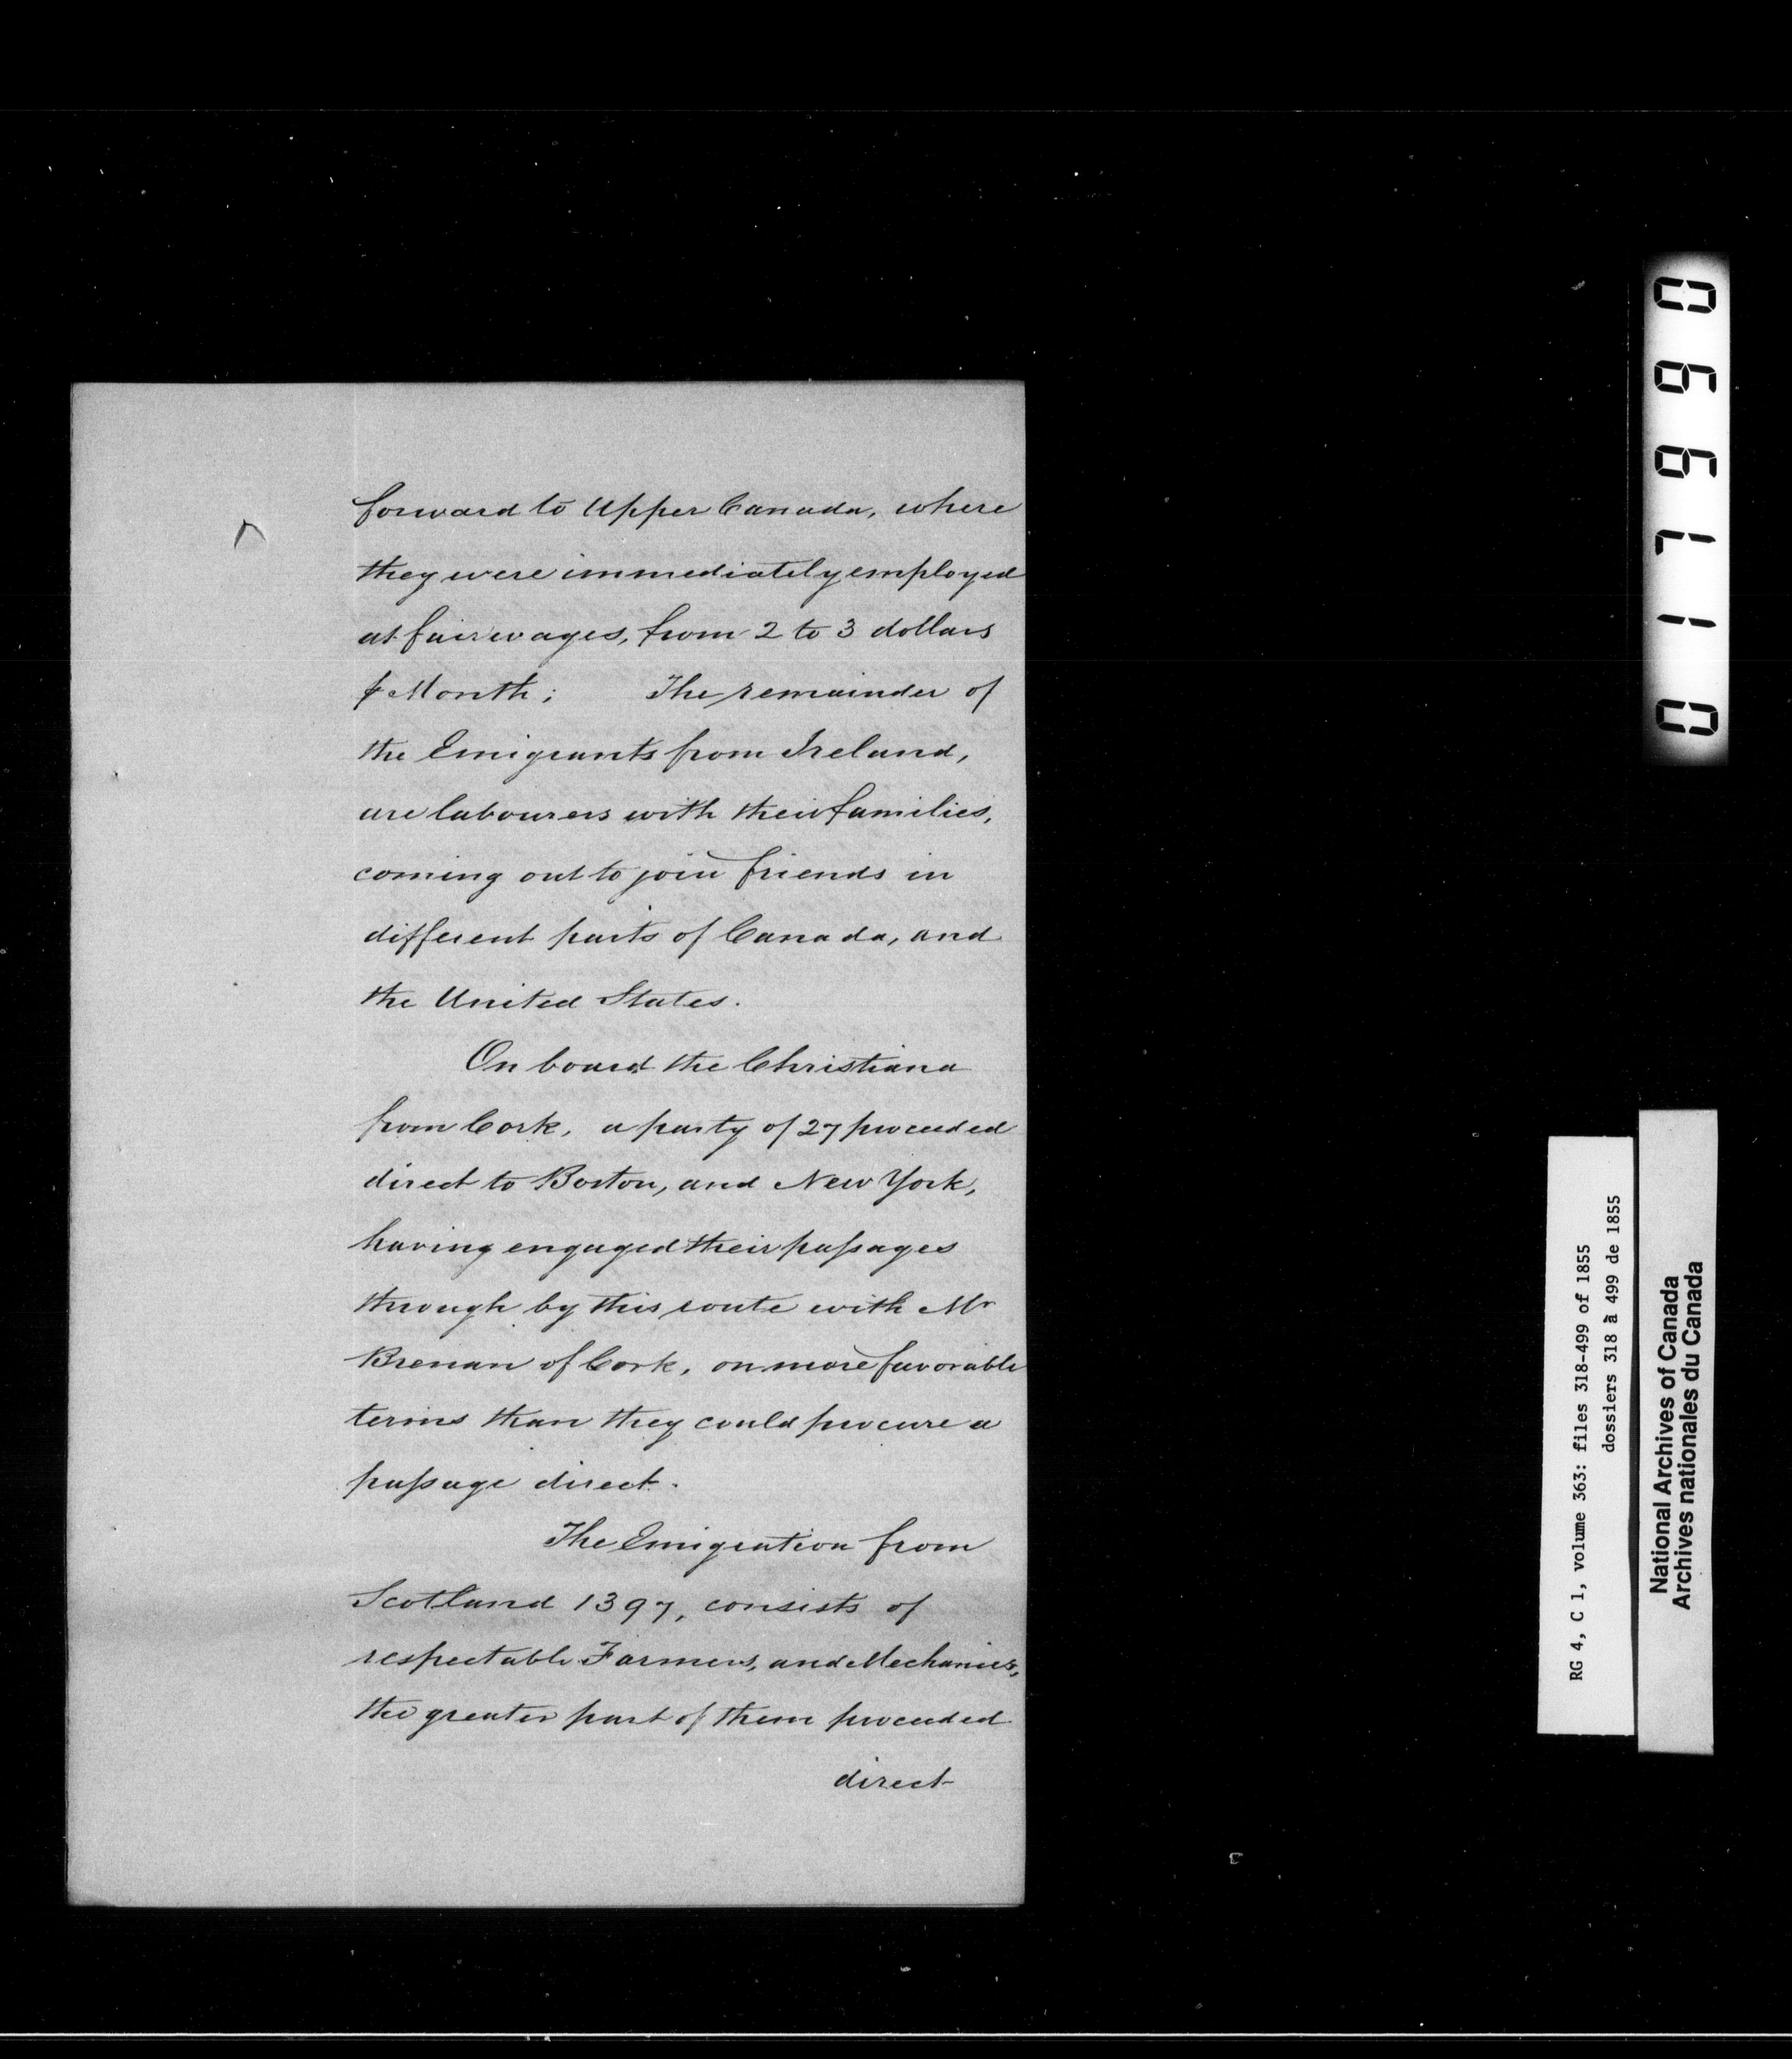 forward to Upper Canada, where
they were immediately employed
at fair wages, from 2 to 3 dollars
⅌ Month; The remainder of
the Emigrants from Ireland,
are labourers with their families,
coming out to join friends in
different parts of Canada, and
the United States.
On board the Christiana
from Cork, a party of 27 proceeded
direct to Boston, and New York,
having engaged their passages
through by this route with Mr
Brenan of Cork, on more favorable
terms than they could procure a
passage direct.
The Emigration from
Scotland 1397, consists of
respectable Farmers, and Mechanics,
the greater part of them proceeded
direct
017660
RG 4, C 1, volume 363: files 318-499 of 1855
dossiers 318 à 499 de 1855
National Archives of Canada
Archives nationales du Canada